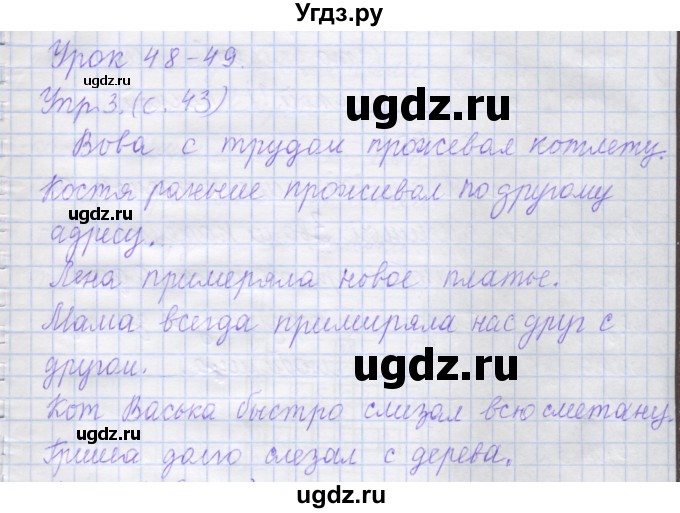 Угдз.ру
Урок 48-49.
Упр 3. (с. 43)
Вова с трудом прожевал котлету.
Костя раньше проживал по другому
адресу.
Лена примеряла новое платье.
Мама всегда примиряла нас друг с
другом.
Кот Васька быстро слизал всю сметану.
Гриша долго слезал с дерева.
ugdz.ru
ugdz.ru
ugdz.ru
ugdz.ru
ugdz.ru
ugdz.ru
ugdz.ru
ugdz.ru